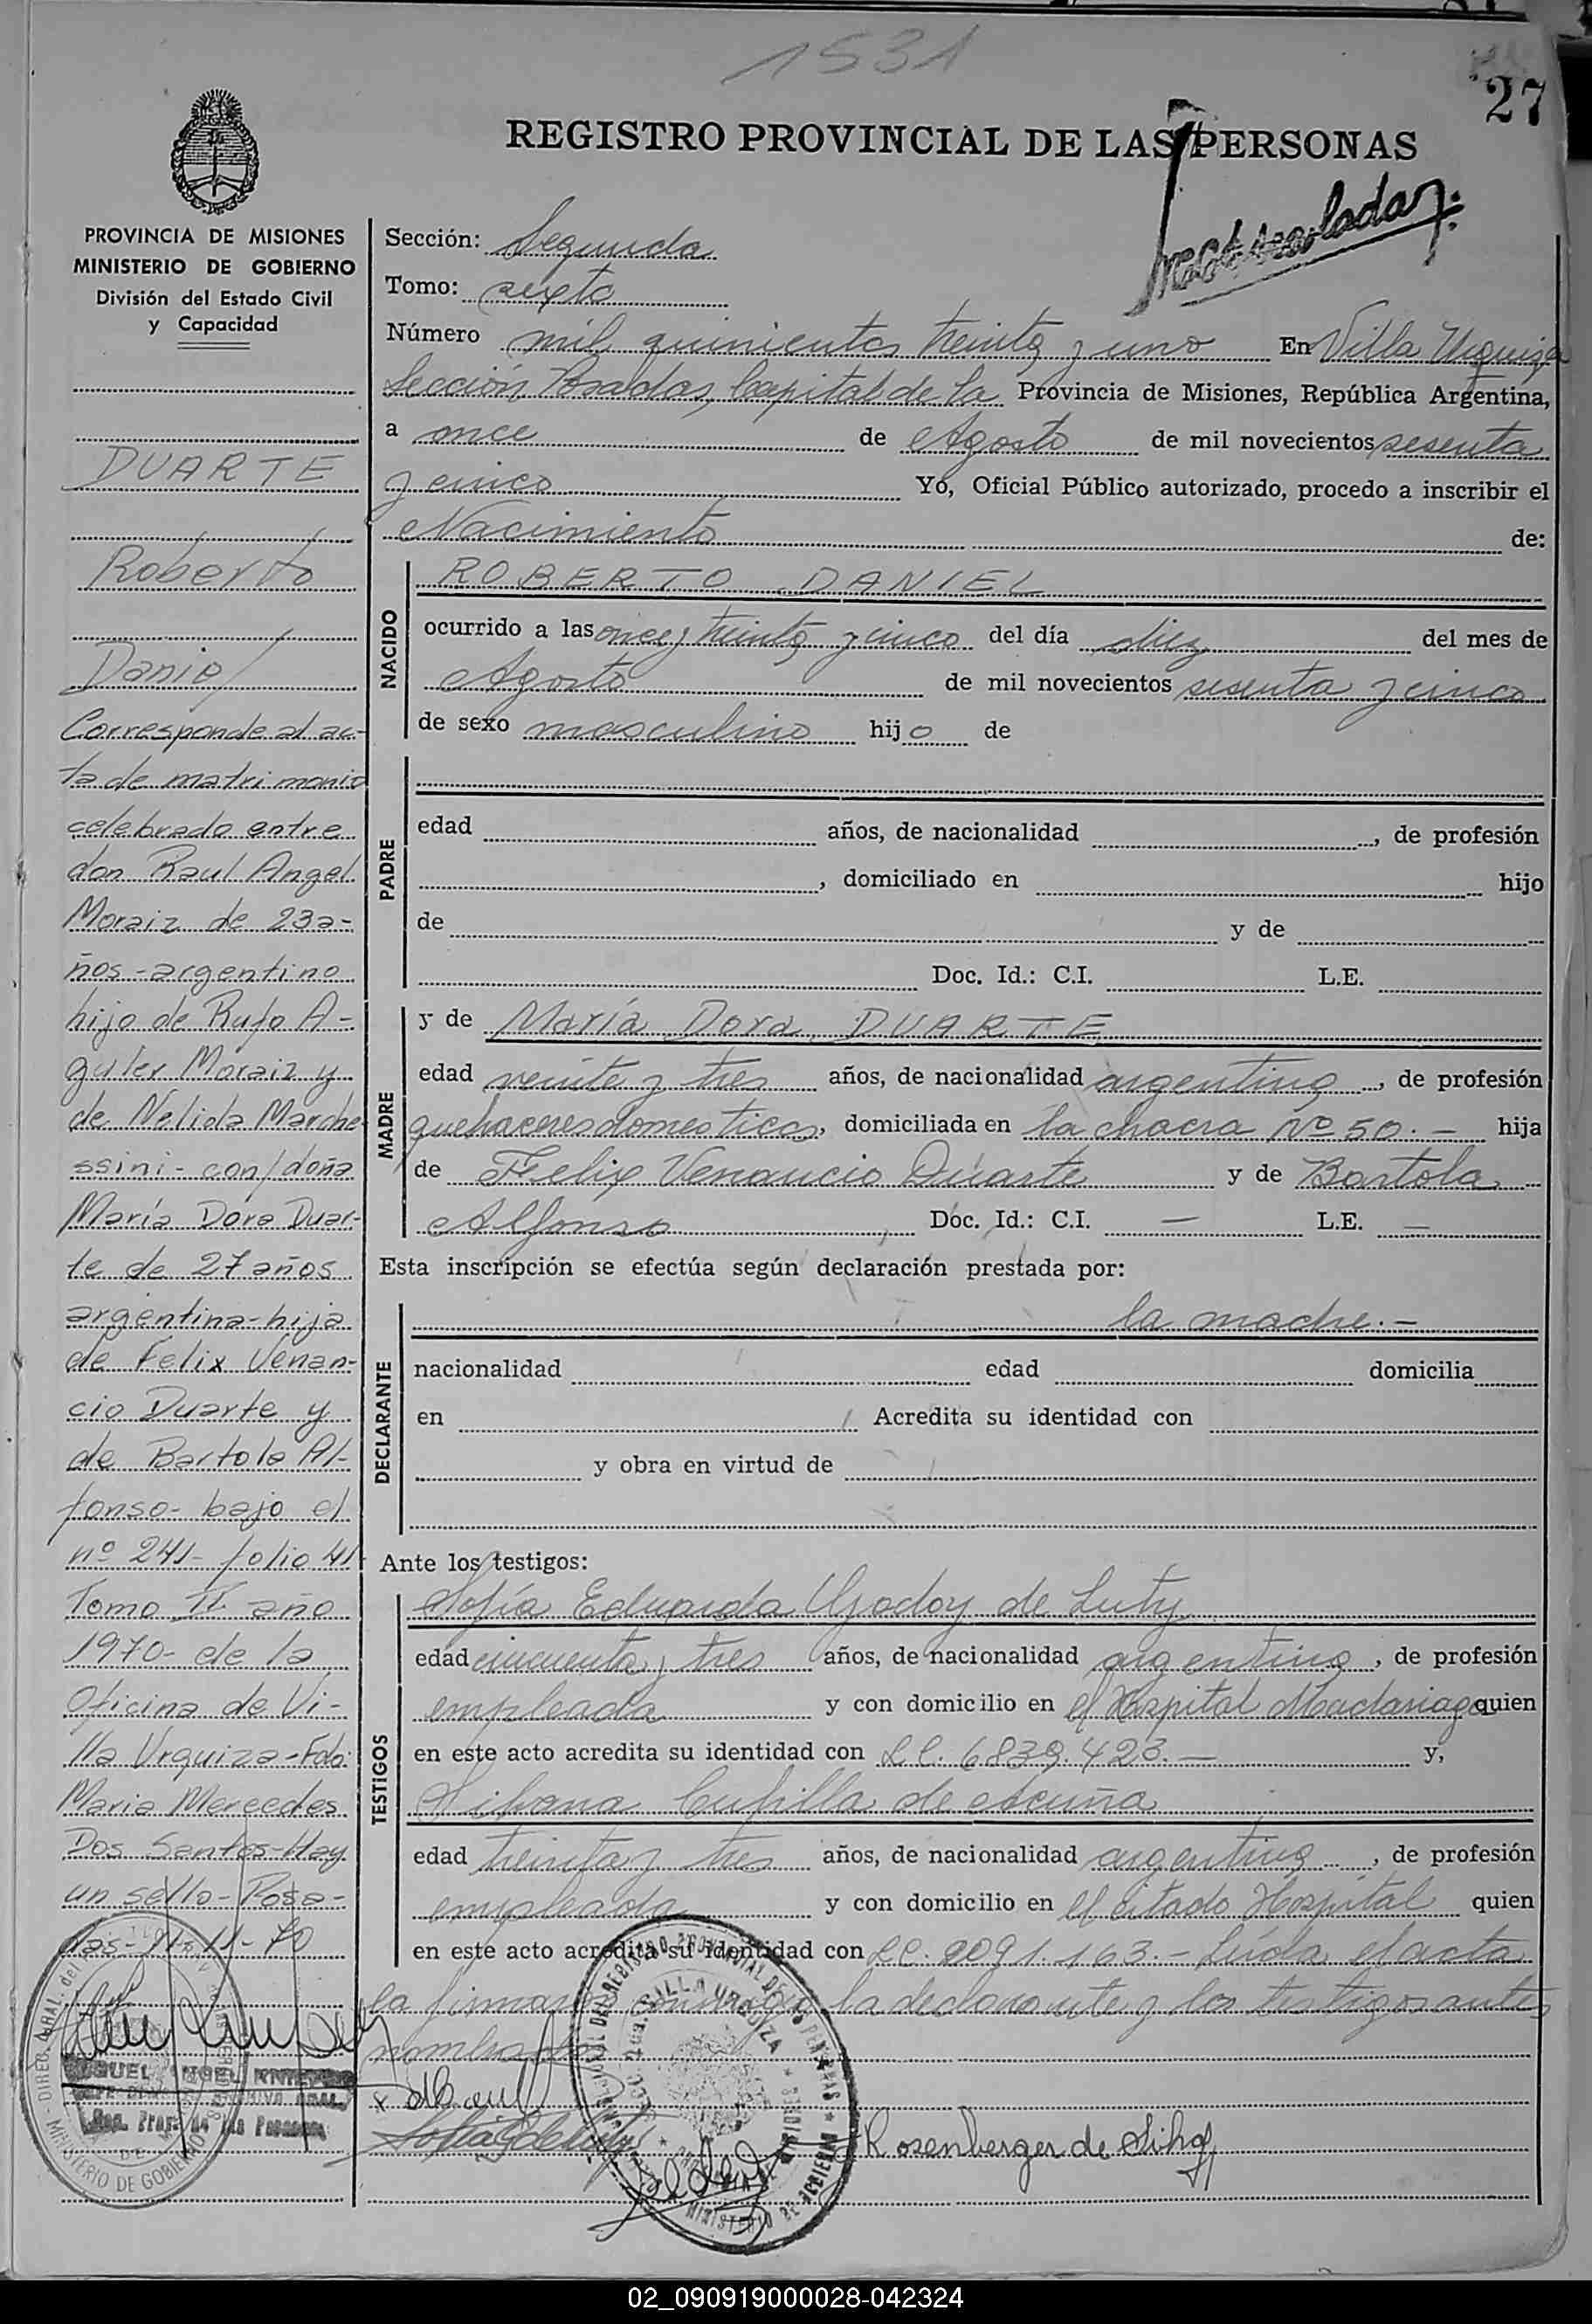 1531
27
REGISTRO PROVINCIAL DE LAS PERSONAS
PROVINCIA DE MISIONES
MINISTERIO DE GOBIERNO
División del Estado Civil
y Capacidad
DUARTE
Roberto
Daniel
Corresponde al ac-
ta de matrimonio
celebrado entre
don Raul Angel
Moraiz de 23 a-
ños - argentino
hijo de Rufo A-
guler Moraiz y
de Nelida Marche
ssini - con/doña
María Dora Duar-
te de 27 años
argentina - hija
de Felix Venan-
cio Duarte y
de Bartola Al-
fonso - bajo el
nº 241 - folio 41
Tomo II año
1970 - de la
Oficina de Vi-
lla Urquiza - Fdo:
Maria Mercedes
Dos Santos - Hay
un sello - Posa-
das - 11 - 11 - 70
Sección: Segunda
Tomo: sexto
Número mil quinientos treinta y uno En Villa Urquiza
Sección Posadas, Capital de la Provincia de Misiones, República Argentina,
a once de Agosto de mil novecientos sesenta
y cinco Yo, Oficial Público autorizado, procedo a inscribir el
Nacimiento de:
NACIDO
ROBERTO DANIEL
ocurrido a las once y treinta y cinco del día diez del mes de
Agosto de mil novecientos sesenta y cinco
de sexo masculino hijo de
PADRE
edad años, de nacionalidad , de profesión
, domiciliado en hijo
de y de
Doc. Id.: C.I. L.E.
MADRE
y de María Dora DUARTE
edad veinte y tres años, de nacionalidad argentina, de profesión
quehaceres domesticos, domiciliada en la chacra Nº 50.- hija
de Felix Venancio Duarte y de Bartola
Alfonso, Doc. Id.: C.I. — L.E. —
Esta inscripción se efectúa según declaración prestada por:
DECLARANTE
la madre.-
nacionalidad edad domicilia
en Acredita su identidad con
y obra en virtud de
Ante los testigos:
TESTIGOS
Sofía Eduarda Godoy de Luty
edad cincuenta y tres años, de nacionalidad argentina, de profesión
empleada y con domicilio en el Hospital Madariaga quien
en este acto acredita su identidad con L.C. 6839.423.— y,
de Acuña
edad treinta y tres años, de nacionalidad argentina, de profesión
empleada y con domicilio en el citado Hospital quien
en este acto acredita su identidad con L.C. 2091.163.- Leída el acta
la firman conmigo la declarante y los testigos antes
nombrados
Rosenberger de
MINISTERIO DE GOBIERNO
VILLA URQUIZA
02_090919000028-042324